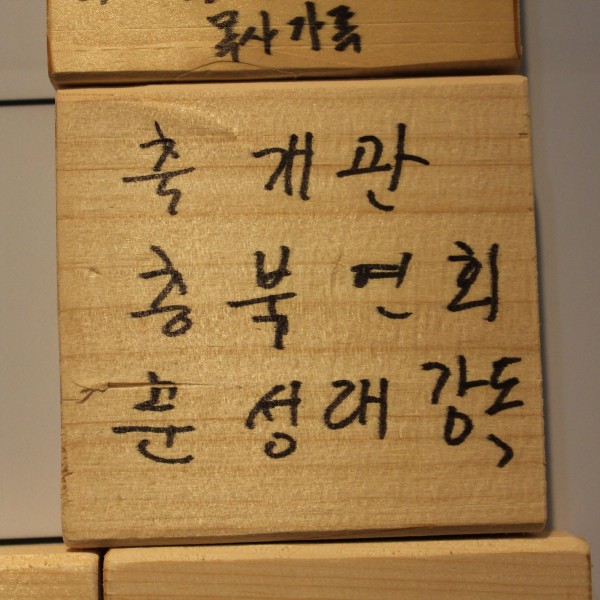 목사가족
축 개관
충북연회
문성대 감독